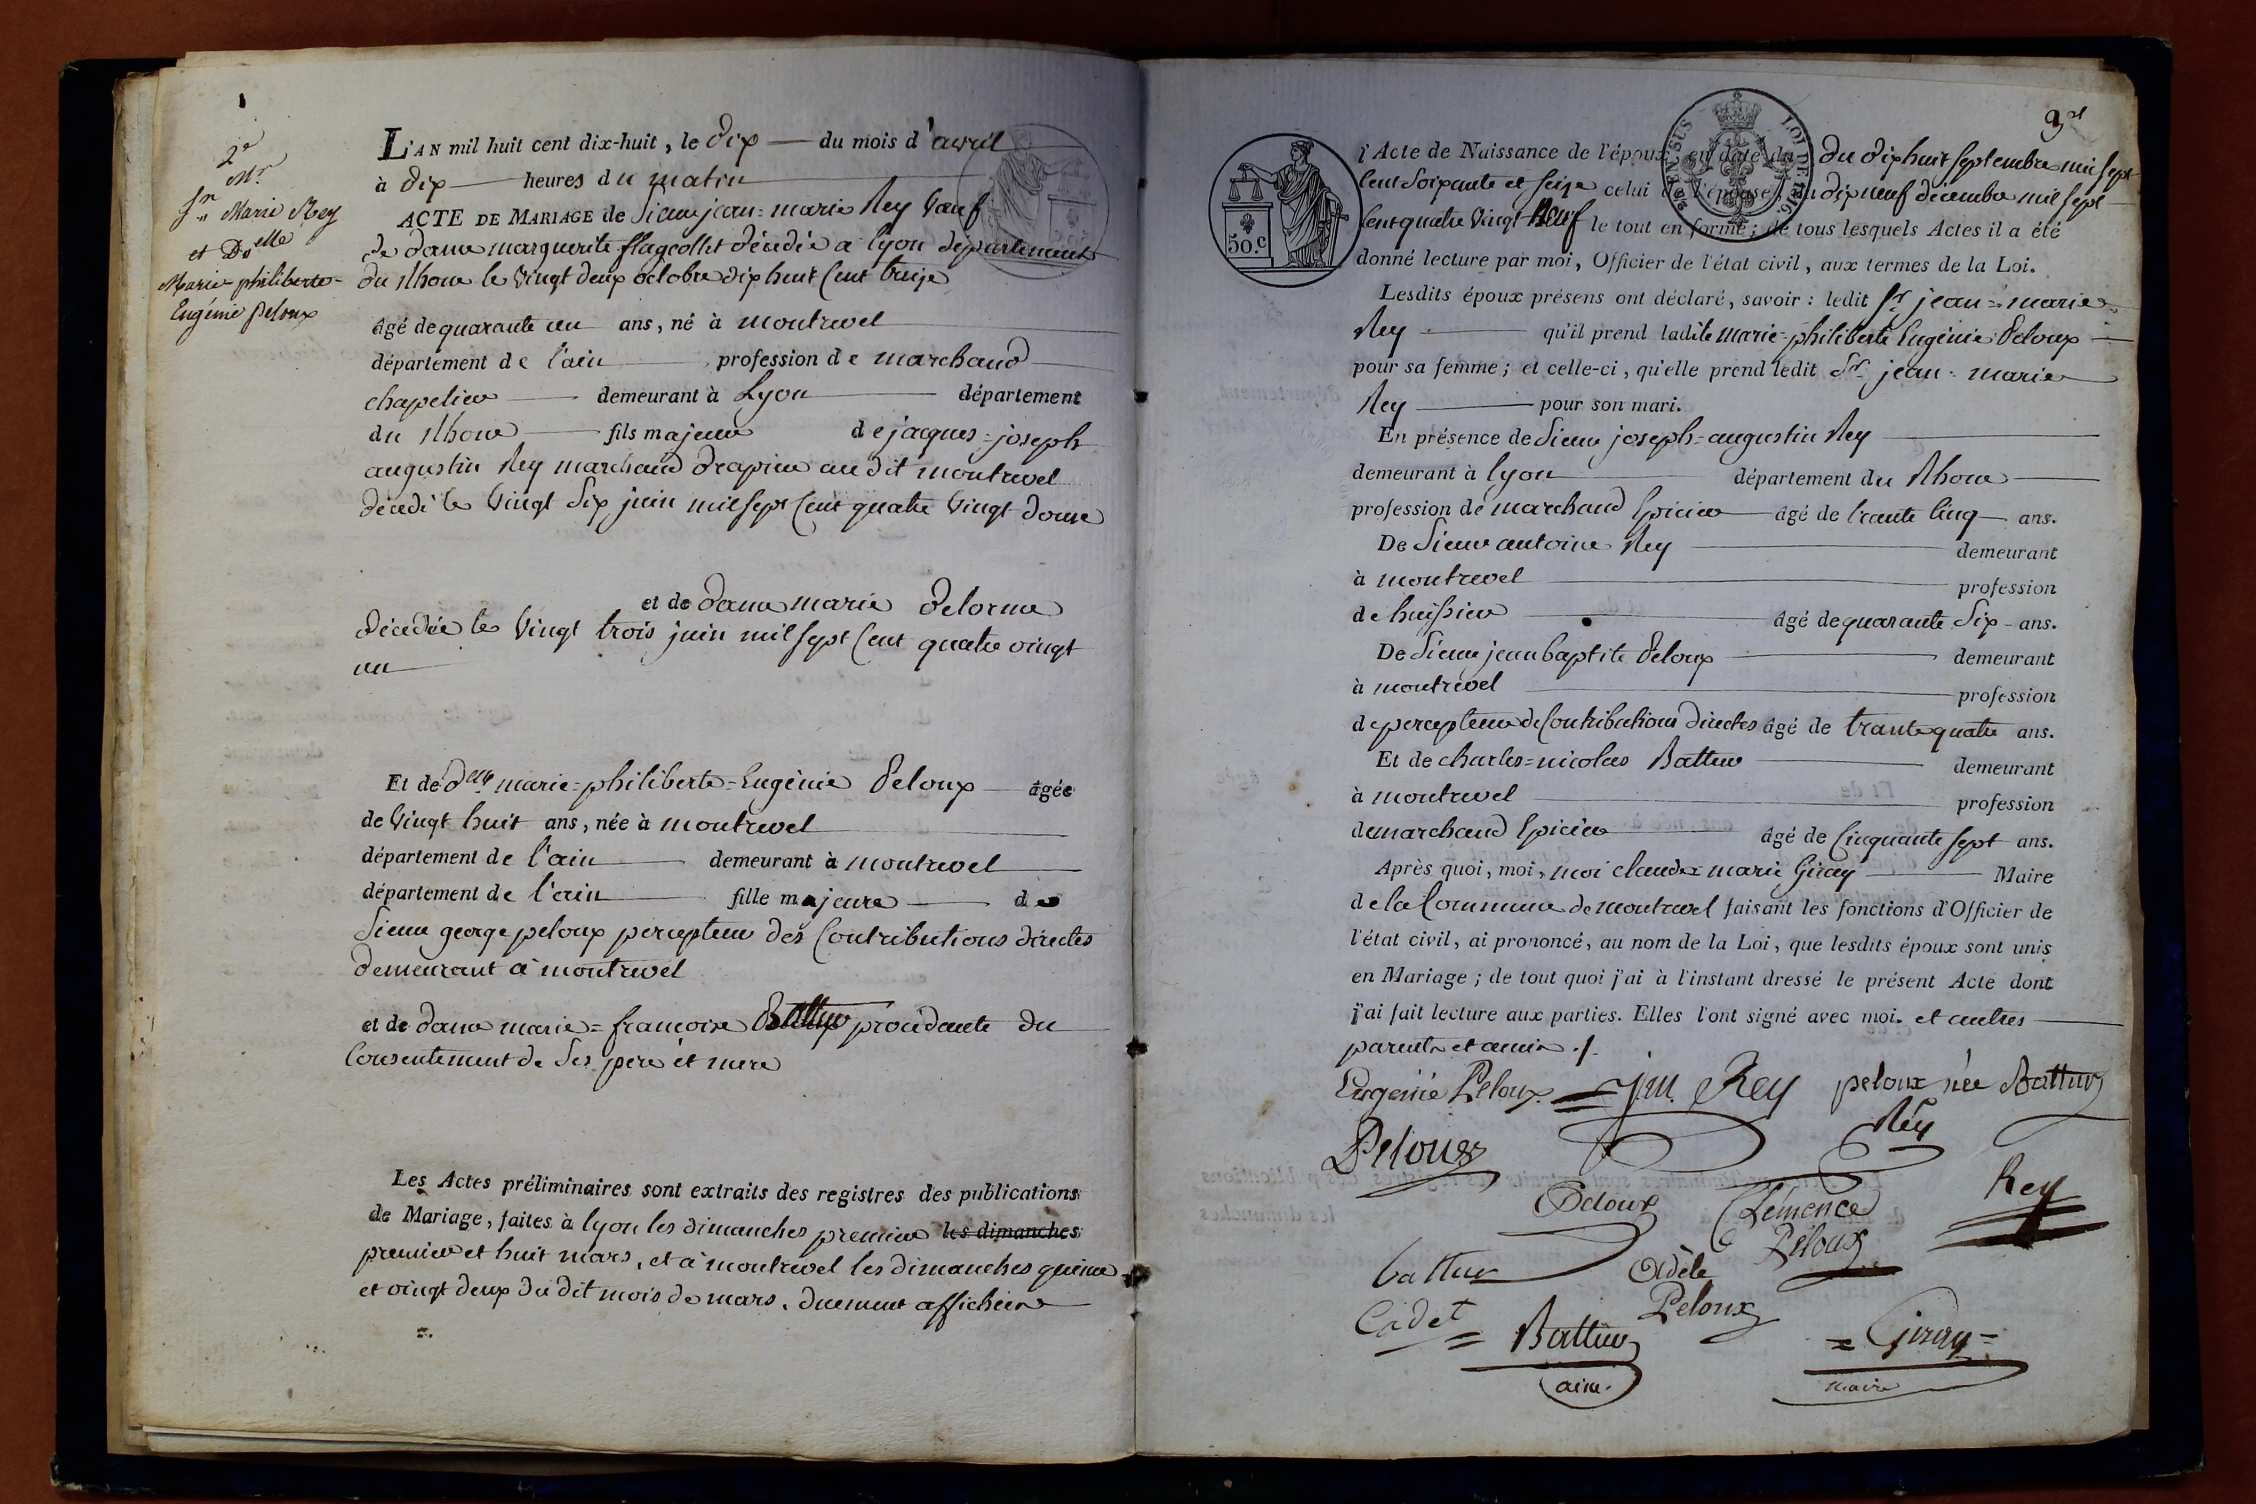 2e
Mr
Jn Marie Rey
et Delle
Marie philiberte-
Eugénie peloux
L'AN mil huit cent dix-huit, le dix du mois d'avril
à dix heures du matin
ACTE DE MARIAGE de Sieur jean=marie Rey Veuf
de dame marguerite flageollet décédée a lyon département
du Rhone le vingt deux octobre dix huit cent treize
âgé de quarante un ans, né à montrevel
département de l'ain profession de marchand
chapelier demeurant à Lyon département
du Rhone fils majeur de jacques=joseph
augustin Rey marchand drapier au dit montrevel
décédé le vingt Six juin mil sept Cent quatre vingt douze
et de dame marie delorme
décédée le vingt trois juin mil sept Cent quatre vingt
un
Et de delle marie=philiberte=Eugénie Peloux âgée
de vingt huit ans, née à montrevel
département de l'ain demeurant à montrevel
département de l'ain fille majeure de
Sieur george peloux percepteur des Contributions directes
demeurant a montrevel
et de dame marie=francoise Battur procédante du
Consentement de Ses pere et mere
Les Actes préliminaires sont extraits des registres des publications
de Mariage, faites à lyon les dimanches premier les dimanches
premier et huit mars, et à montrevel les dimanches quinze
et vingt deux du dit mois de mars. duement affichées
3
50.c
EN SUS
LOI DE 1816.
l'Acte de Naissance de l'époux en date du du dix huit septembre mil sept
Cent Soixante et Seize celui de l'épouse du dix neuf décembre mil sept
Cent quatre vingt Neuf le tout en forme; de tous lesquels Actes il a été
donné lecture par moi, Officier de l'état civil, aux termes de la Loi.
Lesdits époux présens ont déclaré, savoir: ledit Sr jean=marie
Rey qu'il prend ladite marie=philiberte Eugénie Peloux
pour sa femme; et celle-ci, qu'elle prend ledit Sr jean=marie
Rey pour son mari.
En présence de Sieur joseph=augustin Rey
demeurant à lyon département du Rhone
profession de marchand Epicier âgé de trante Cinq ans.
De Sieur antoine Rey demeurant
à montrevel profession
de huissier âgé de quarante Six ans.
De Sieur jean baptite Peloux demeurant
à montrevel profession
de percepteur de Contributions directes âgé de trante quatre ans.
Et de charles=nicolas Battur demeurant
à montrevel profession
de marchand Epicier âgé de Cinquante sept ans.
Après quoi, moi, moi claude marie Giray Maire
de la Commune de montrevel faisant les fonctions d'Officier de
l'état civil, ai prononcé, au nom de la Loi, que lesdits époux sont unis
en Mariage; de tout quoi j'ai à l'instant dressé le présent Acte dont
j'ai fait lecture aux parties. Elles l'ont signé avec moi. et autres
parents et amis ./.
Eugénie Peloux = j.m. Rey peloux née Battur
Peloux Rey
Peloux Clémence Rey
Peloux
battur Adèle
Cadet Peloux
= Battur = Giray =
ainé. maire